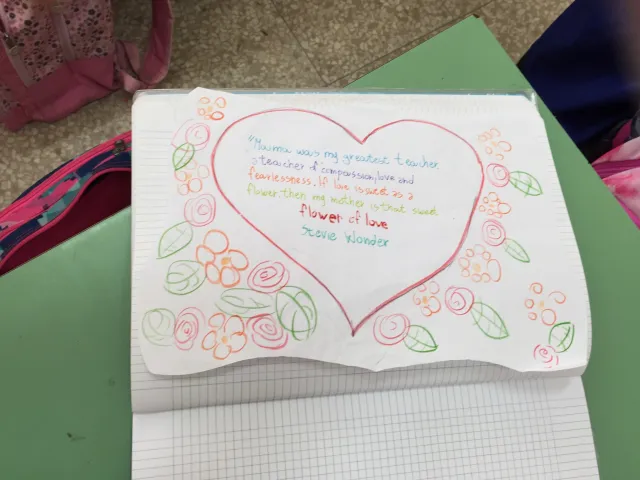 "Mama was my greatest teacher,
a teacher of compassion, love and
fearlessness. If love is sweet as a
flower, then my mother is that sweet
flower of love
Stevie Wonder